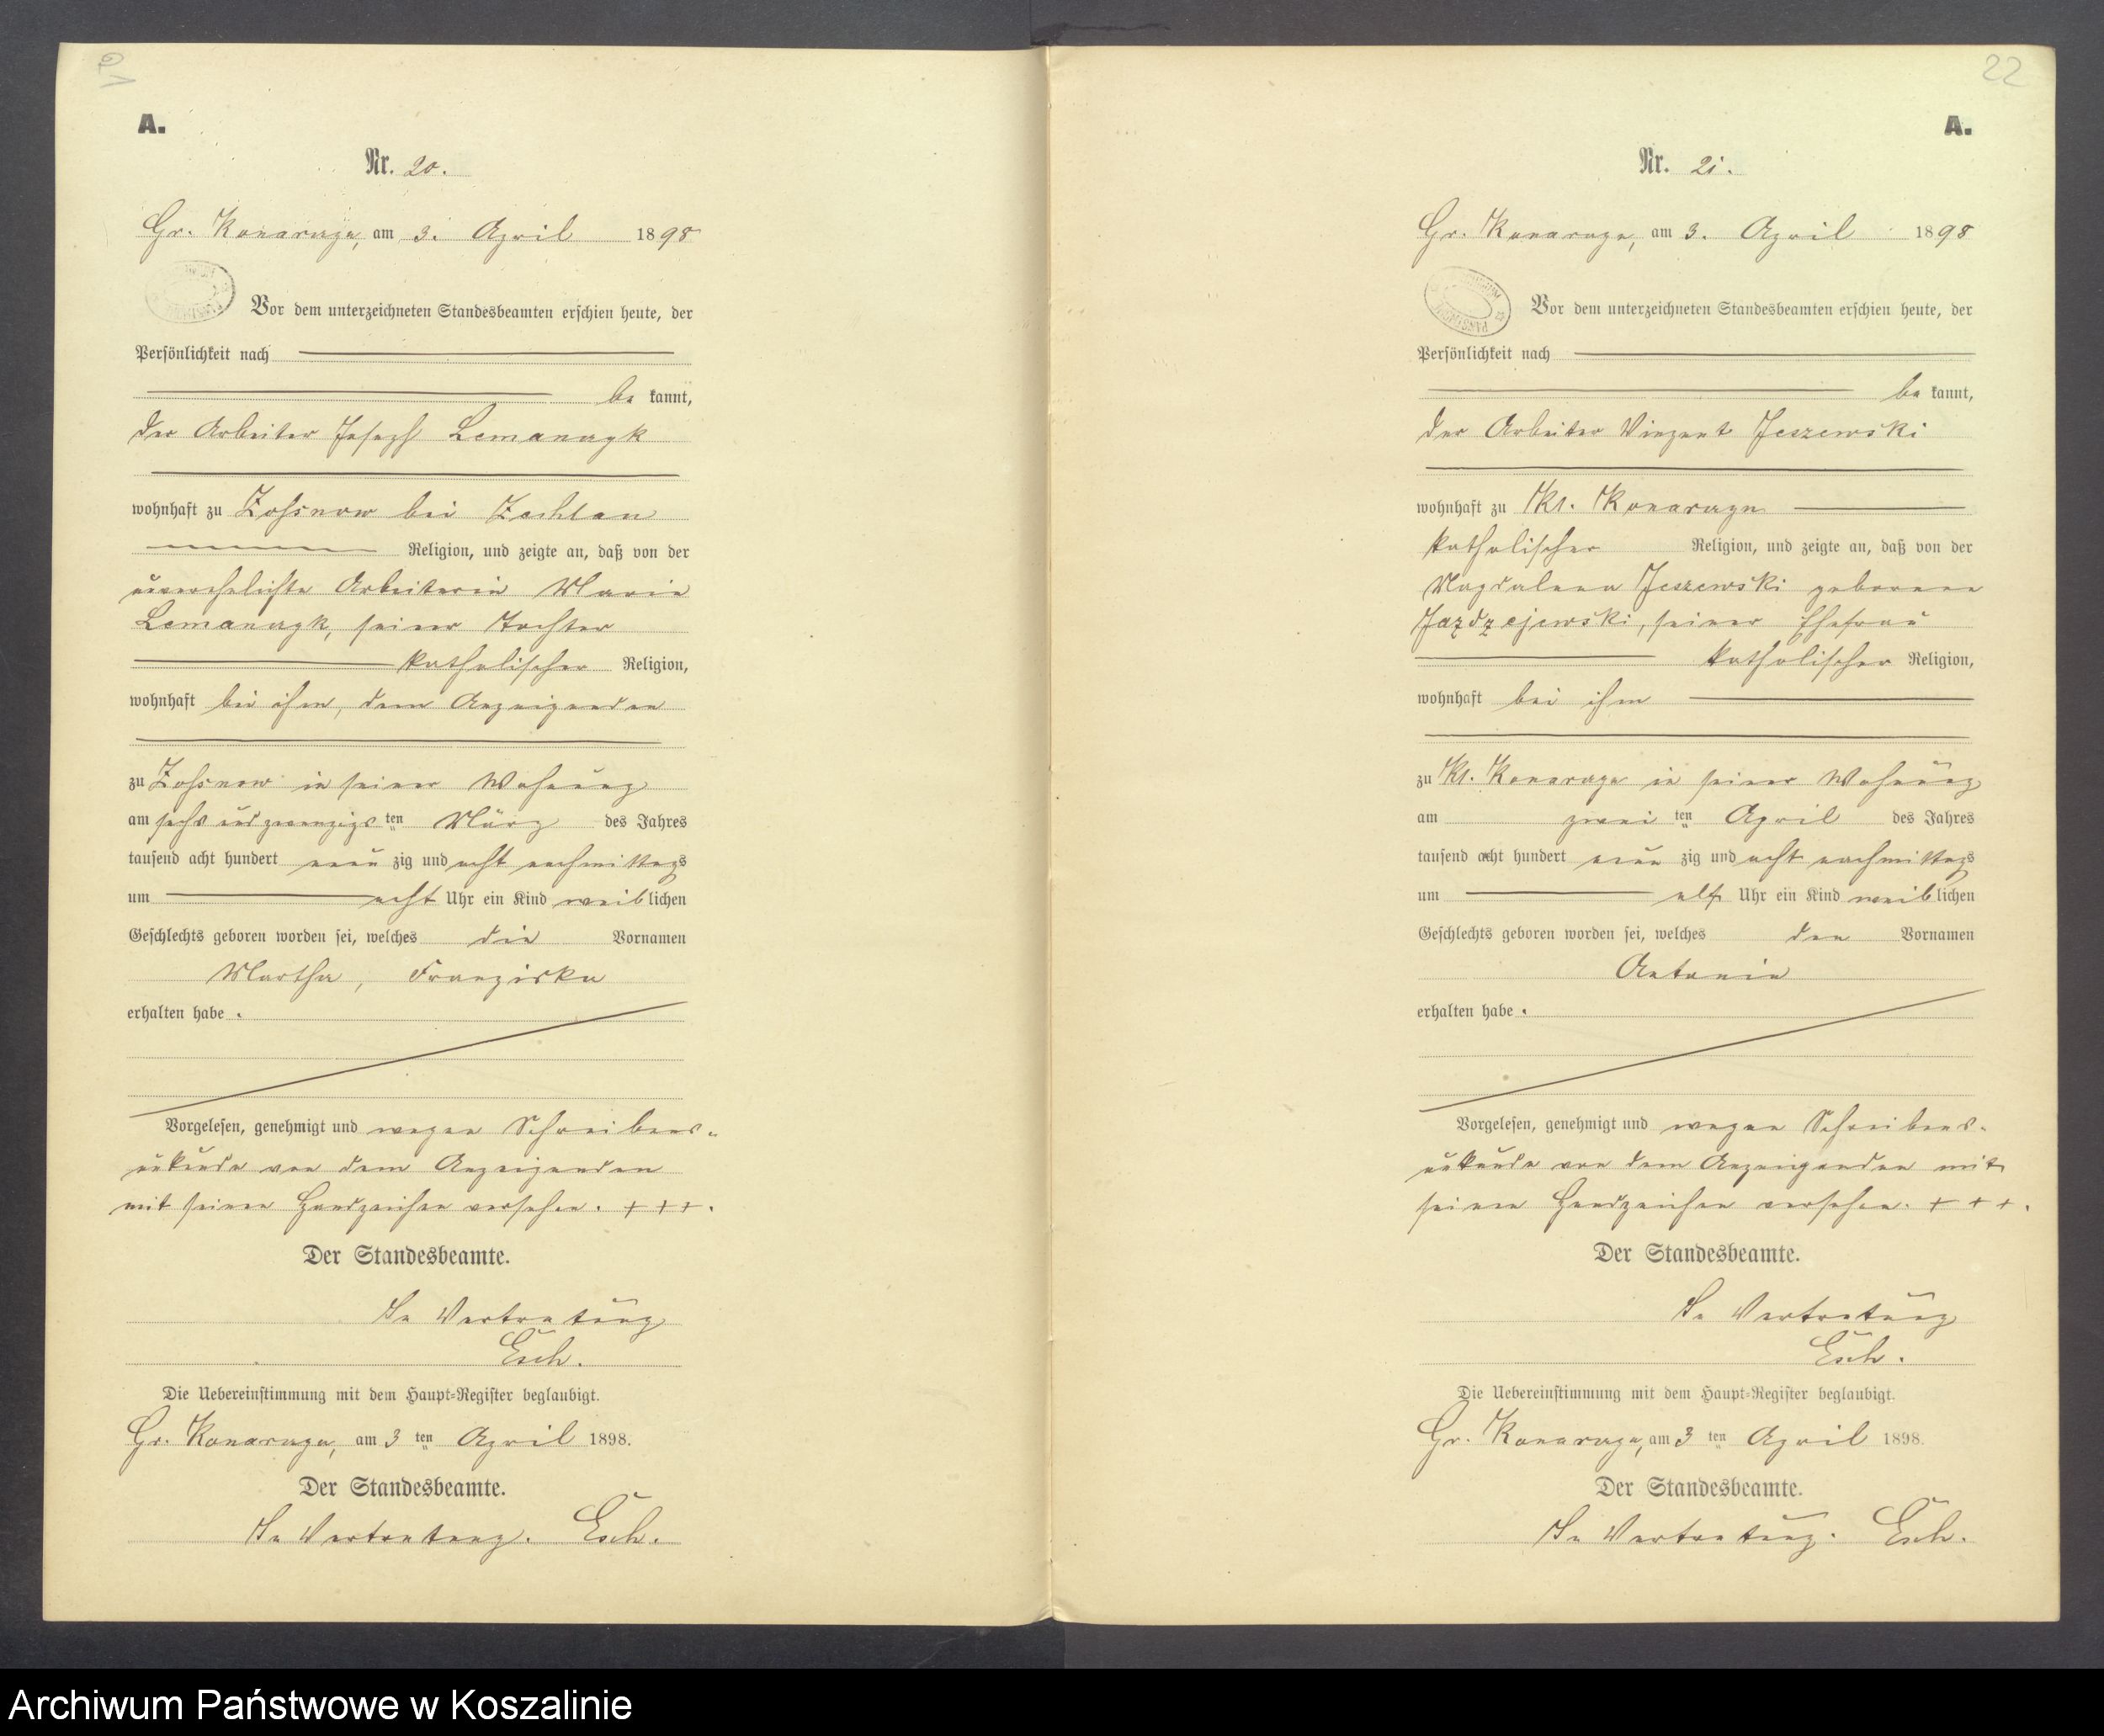 A.
Nr. 20.
Gr. Konarzyn, am 3. April 1898
Vor dem unterzeichneten Standesbeamten erschien heute, der
Persönlichkeit nach
be kannt,
der Arbeiter Joseph Lemanczyk
wohnhaft zu Zossnow bei Zechlau
Religion, und zeigte an, daß von der
unverehelichte Arbeiterin Marie
Lemanczyk, seiner Tochter
katholischer Religion,
wohnhaft bei ihm, dem Anzeigenden
zu Zossnow in seiner Wohnung
am sechs und zwanzigsten März des Jahres
tausend acht hundert neun zig und acht nachmittags
um acht Uhr ein Kind weiblichen
Geschlechts geboren worden sei, welches die Vornamen
Martha, Franziska
erhalten habe.
Vorgelesen, genehmigt und wegen Schreibens-
unkunde von dem Anzeigenden
mit seinen Handzeichen versehen. + + + .
Der Standesbeamte.
In Vertretung
Esch.
Die Uebereinstimmung mit dem Haupt-Register beglaubigt.
Gr. Konarzyn, am 3 ten April 1898.
Der Standesbeamte.
In Vertretung. Esch.
22
A.
Nr. 21.
Gr. Konarzyn, am 3. April 1898
Vor dem unterzeichneten Standesbeamten erschien heute, der
Persönlichkeit nach
be kannt,
der Arbeiter Vinzent Jeszewski
wohnhaft zu Kl. Konarzyn
katholischer Religion, und zeigte an, daß von der
Magdalena Jeszewski geborene
Jazdzejewski, seiner Ehefrau
katholischer Religion,
wohnhaft bei ihm
zu Kl. Konarzyn in seiner Wohnung
am zwei ten April des Jahres
tausend acht hundert neun zig und acht nachmittags
um elf Uhr ein Kind weiblichen
Geschlechts geboren worden sei, welches den Vornamen
Antonie
erhalten habe.
Vorgelesen, genehmigt und wegen Schreibens-
unkunde von dem Anzeigenden mit
seinen Handzeichen versehen. + + + .
Der Standesbeamte.
In Vertretung
Esch.
Die Uebereinstimmung mit dem Haupt-Register beglaubigt.
Gr. Konarzyn, am 3 ten April 1898.
Der Standesbeamte.
In Vertretung. Esch.
Archiwum Państwowe w Koszalinie